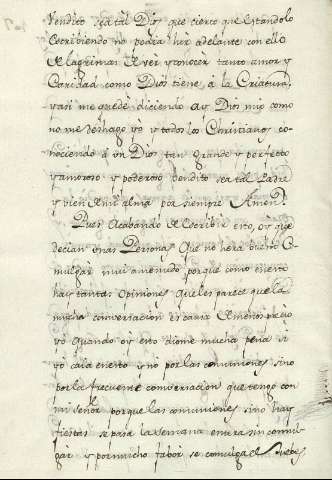 vendito sea tal Dios que cierto que estandolo
escribiendo no podia her adelante con ello
de lagrimas de ver y conocer tanto amor y
Caridad como Dios tiene, â la Criatura,
yasi me quedè diciendo ay Dios mio como
no me deshago yò y todos los Christianos co-
nociendo â vn Dios tan grande y perfecto
y amoroso y poderoso bendito sea tal Padre
y vien de mi alma por siempre Amen.
Pues Acabando de escribir esto, oỳ que
decian vnas Personas que no hera bueno Co-
mulgar mui amenudo porque como en esto
hay tantas Opiniones queles parece que la
mucha conversacion es causa de menos precio
yò quando oỳ esto diome mucha pena si
yò caìa en esto y nò por las comuniones sino
por la frecuente comversacion que tengo con
mi señor porque las comuniones sino hay
fiestas se pasa la semana entera sin comul-
gar y por mucho fabor se comulga el Juebes